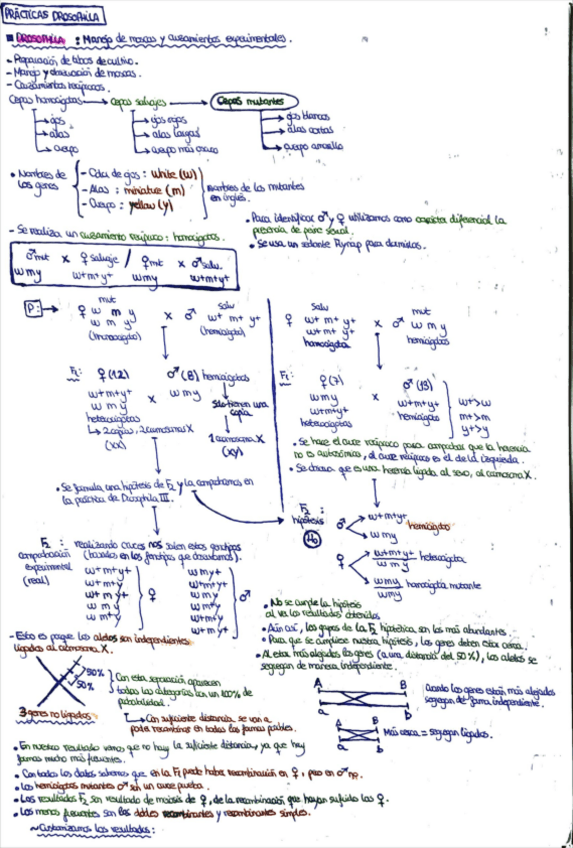 PRÁCTICAS DROSOPHILA
DROSOPHILA : Manejo de moscas y cruzamientos experimentales.
- Preparación de tubos de cultivo.
- Manejo y observación de moscas.
- Cruzamientos recíprocos.
Cepas homocigotas → cepas salvajes → Cepas mutantes
ojos
alas
cuerpo
ojos rojos
alas largas
cuerpo más oscuro
ojos blancos
alas cortas
cuerpo amarillo
Nombres de los genes
- Color de ojos : white (w)
- Alas : miniature (m)
- Cuerpo : yellow (y)
nombres de los mutantes
en inglés.
Para identificar ♂ y ♀ utilizamos como carácter diferencial la
presencia de peine sexual.
Se usa un sedante Flynap para dormirlas.
- Se realiza un cruzamiento recíproco : homocigotos.
♂mut x ♀ salvaje / ♀mut x ♂ salv.
wmy w+m+y+ wmy w+m+y+
P: →
mut
♀ w m y
w m y
(homocigoto)
x
salv
♂ w+ m+ y+
(hemicigoto)
salv
♀ w+ m+ y+
w+ m+ y+
homocigota
x
mut
♂ w m y
hemicigotos
F1: ♀(12)
w+m+y+
w m y
heterocigotos
↳ 2 copias, 2 cromosomas X
(XX)
x
♂(8) hemicigotos
w m y
solo tienen una
copia
1 cromosoma X
(XY)
F1: ♀(7)
w m y
w+m+y+
heterocigotos
x
♂(13)
w+m+y+
hemicigotos
w+>w
m+>m
y+>y
Se hace el cruce recíproco para comprobar que la herencia
no es autosómica, el cruce recíproco es el de la izquierda.
Se observa que es una herencia ligada al sexo, al cromosoma X.
Se formula una hipótesis de F2 y la comprobamos en
la práctica de Drosophila III.
F2 :
hipótesis
H0
♂ w+m+y+
w m y
hemicigotos
♀ w+m+y+
w m y
heterocigota
wmy
wmy
homocigota mutante
F2 : realizando cruces nos salen estos genotipos
(basados en los fenotipos que observamos).
comprobación
experimental
(real)
♀
♂
No se cumple la hipótesis
al ver los resultados obtenidos
Aún así, los grupos de la F2 hipotética son los más abundantes.
Para que se cumpliese nuestra hipótesis, los genes deben estar cerca.
Al estar más alejados los genes (a una distancia del 50%), los alelos se
segregan de manera independiente.
- Esto es porque los alelos son independientes
ligados al cromosoma X.
50%
50%
3 genes no ligados
Con esta separación aparecen
todas las categorías con un 100% de
probabilidad.
↳ Con suficiente distancia, se van a
poder recombinar en todas las formas posibles.
A B
a b
Cuando los genes están más alejados
segregan de forma independiente.
A B
a b
Más cerca = segregan ligados.
En nuestro resultado vemos que no hay la suficiente distancia, ya que hay
formas mucho más frecuentes.
Con todos los datos sabemos que en la F1 puede haber recombinación en ♀, pero en ♂ no.
Los hemicigotos mutantes ♂ son un cruce prueba.
Los resultados F2 son resultado de meiosis de ♀, de la recombinación que hayan sufrido las ♀.
Los menos frecuentes son los dobles recombinantes y recombinantes simples.